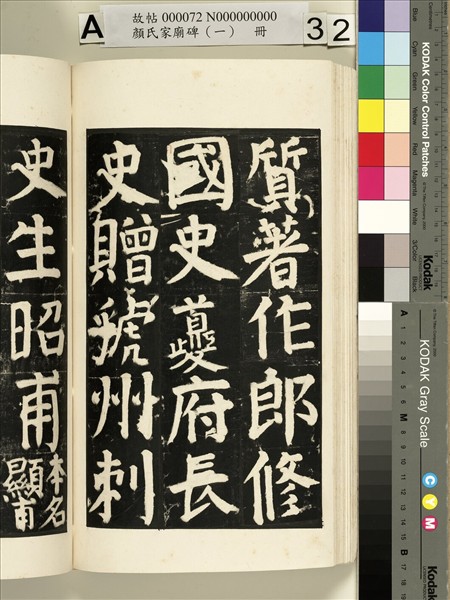 故帖 000072 N000000000
顏氏家廟碑（一） 冊
A
32
質著作郎修
國史夔府長
史贈虢州刺
史生昭甫
本名
顯甫
KODAK Color Control Patches
Blue
Cyan
Green
Yellow
Red
Magenta
White
3/Color
Black
Kodak
KODAK Gray Scale
A 1 2 3 4 5 6 M 8 9 10 11 12 13 14 15 B 17 18 19
C Y M
Kodak